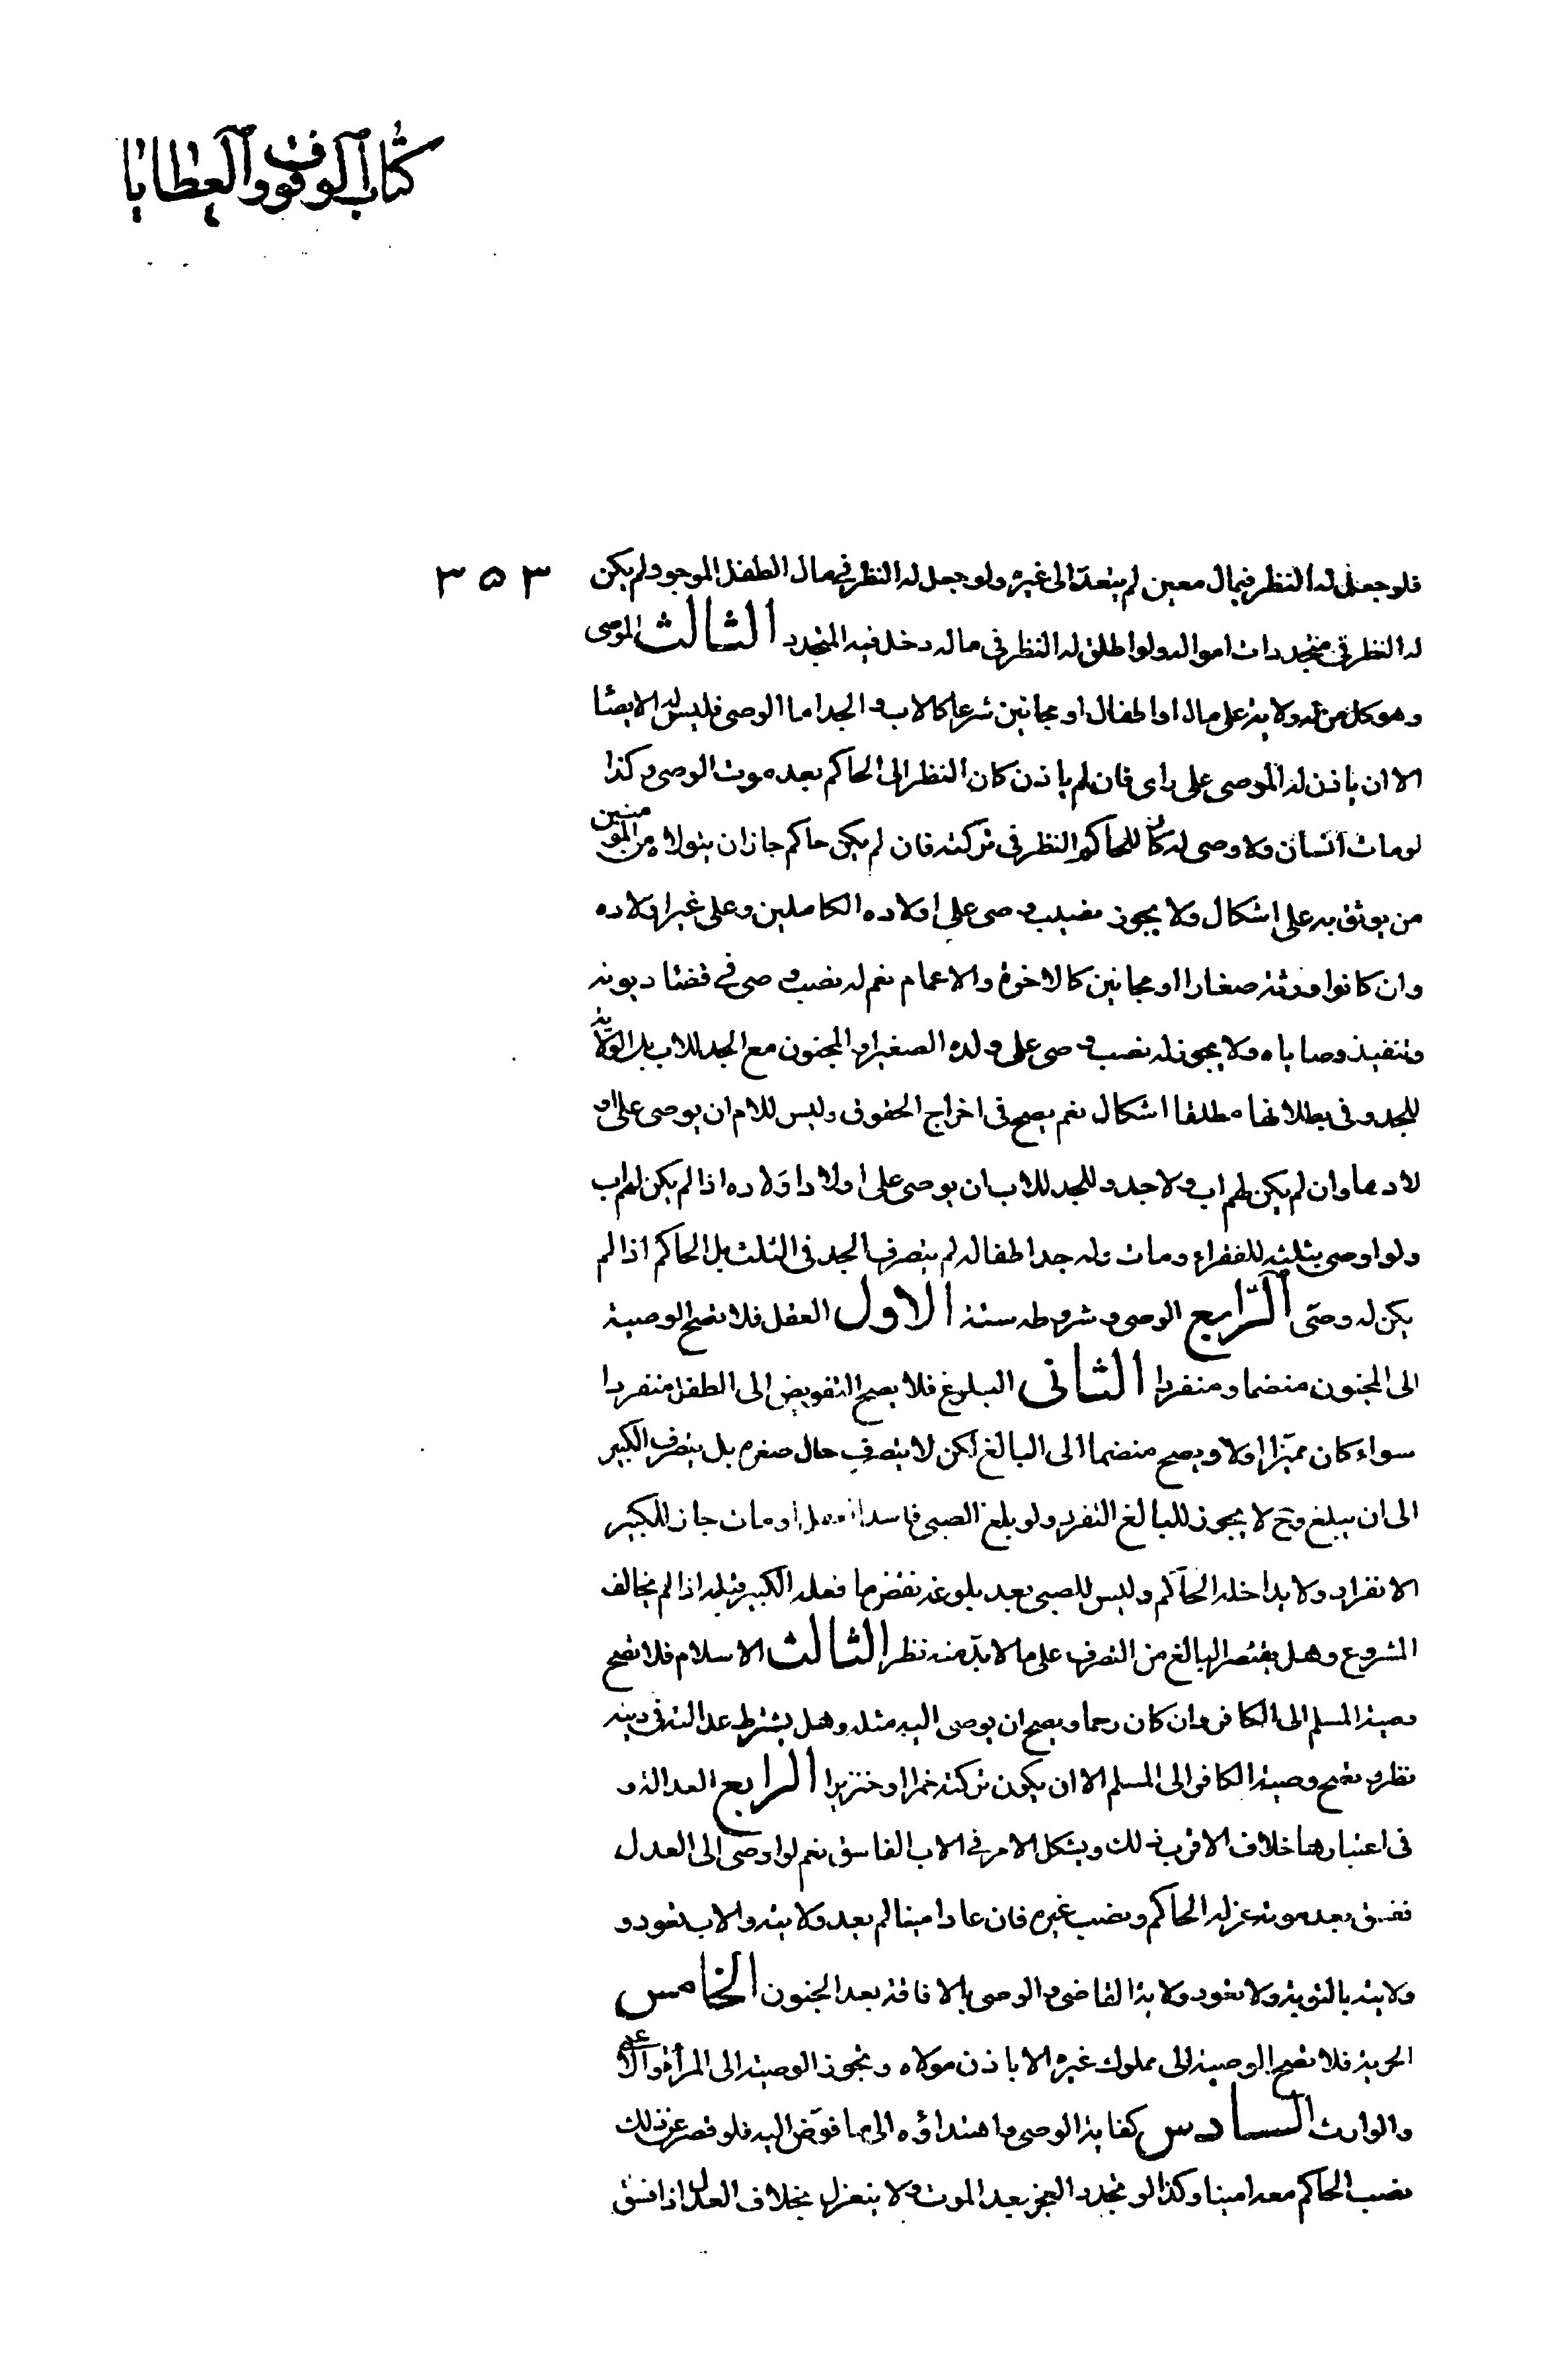 كتاب الوقوف والعطايا
٣٥٣
فلو جعل له النظر في مال معين لم يتعدّ الى غيره ولو جعل له النظر في مال الطفل الموجود لم يكن
له النظر في متجددات امواله ولو اطلق له النظر في ماله دخل فيه المتجدد الثالث الموصى
وهو كل من له ولاية على مال او اطفال او مجانين شرعا كالاب و الجد اما الوصى فليس له الايصا
الا ان ياذن له الموصى على راى فان لم ياذن كان النظر الى الحاكم بعد موت الوصى و كذا
لو مات انسان ولا وصى له كان للحاكم النظر في تركته فان لم يكن حاكم جاز ان يتولاه من المؤمنين
من يوثق به على اشكال ولا يجوز نصب وصى على اولاده الكاملين و على غير اولاده
وان كانوا ورثة صغارا او مجانين كالاخوة والاعمام نعم له نصب وصى في قضا ديونه
وتنفيذ وصاياه ولا يجوز له نصب وصى على ولده الصغير او المجنون مع الجد للاب بل الولاية
للجد و فى بطلانها مطلقا اشكال نعم يصح فى اخراج الحقوق وليس للام ان يوصى على او
لادها وان لم يكن لهم اب ولا جد و للجد للاب ان يوصى على اولاد اولاده اذا لم يكن لهم اب
ولو اوصى بثلثه للفقراء ومات وله جد اطفاله لم يتصرف الجد فى الثلث بل الحاكم اذا لم
يكن له وصّى الرّابع الوصى و شروطه ستة الاول العقل فلا تصح الوصية
الى المجنون منضما ومنفردا الثانى البلوغ فلا يصح التفويض الى الطفل منفردا
سواء كان مميّزا اولا ويصح منضما الى البالغ لكن لا يتصرف حال صغره بل يتصرف الكبير
الى ان يبلغ وح لا يجوز للبالغ التفرد ولو بلغ الصبى فاسد العقل او مات جاز للكبير
الانفراد ولا يداخله الحاكم وليس للصبى بعد بلوغه نقض ما فعله الكبير قبله اذا لم يخالف
المشروع وهل يقتصر البالغ من التصرف على ما لا بدّ منه نظر الثالث الاسلام فلا تصح
وصية المسلم الى الكافر وان كان رحما و يصح ان يوصى اليه مثله وهل يشترط عدالته فى دينه
نظر و تصح وصية الكافر الى المسلم الا ان يكون تركته خمرا او خنزيرا الرابع العدالة و
فى اعتبارها خلاف الاقرب ذلك ويشكل الامر فى الاب الفاسق نعم لو اوصى الى العدل
ففسق بعد موته عزله الحاكم و نصب غيره فان عاد امينا لم يعد ولايته والاب تعود و
ولايته بالتوبة ولا تعود ولاية القاضى و الوصى بالافاقة بعد الجنون الخامس
الحرية فلا تصح الوصية الى مملوك غيره الا باذن مولاه و تجوز الوصية الى المرأة والاعمى
والوارث السادس كفاية الوصى و اهتداؤه الى ما فوّض اليه فلو قصر عن ذلك
نصب الحاكم معه امينا و كذا لو تجدد العجز بعد الموت ولا ينعزل بخلاف العدل اذا فسق